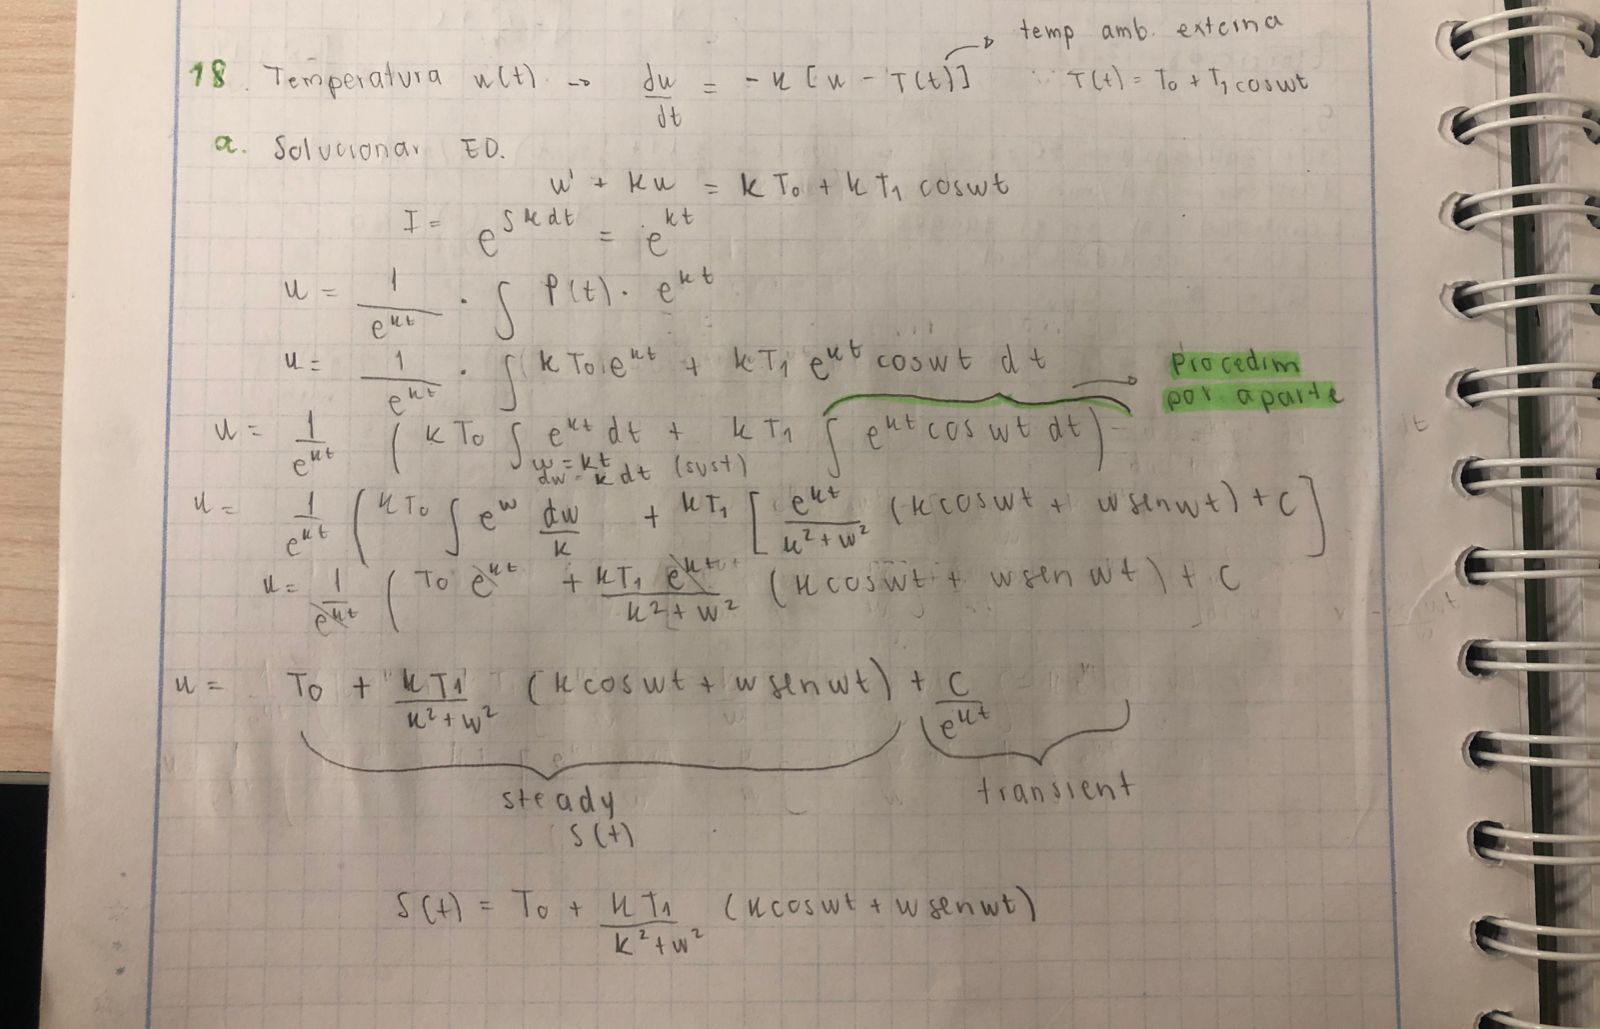 temp amb. externa
18. Temperatura u(t) → du/dt = -k [u - T(t)] T(t) = T₀ + T₁ coswt
a. Solucionar ED.
u' + ku = kT₀ + kT₁ coswt
I = e^∫kdt = e^kt
u = 1/e^kt · ∫ P(t) · e^kt
u = 1/e^kt · ∫ kT₀e^kt + kT₁ e^kt coswt dt → Procedim
por aparte
u = 1/e^kt ( kT₀ ∫ e^kt dt + kT₁ ∫ e^kt cos wt dt )
w = kt
dw = k dt (sust)
u = 1/e^kt ( kT₀ ∫ e^w dw/k + kT₁ [ e^kt/k²+w² (kcoswt + wsenwt) + C ]
u = 1/e^kt ( T₀ e^kt + kT₁ e^kt/k²+w² (kcoswt + wsen wt) + C
u = T₀ + kT₁/k²+w² (kcoswt + wsenwt) + C/e^kt
steady transient
S(t)
S(t) = T₀ + kT₁/k²+w² (kcoswt + wsenwt)